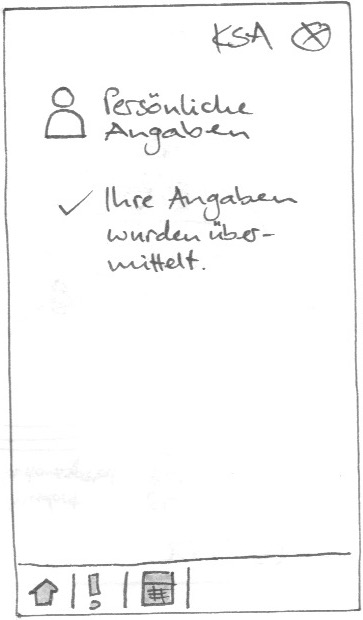 KSA
Persönliche
Angaben
Ihre Angaben
wurden über-
mittelt.